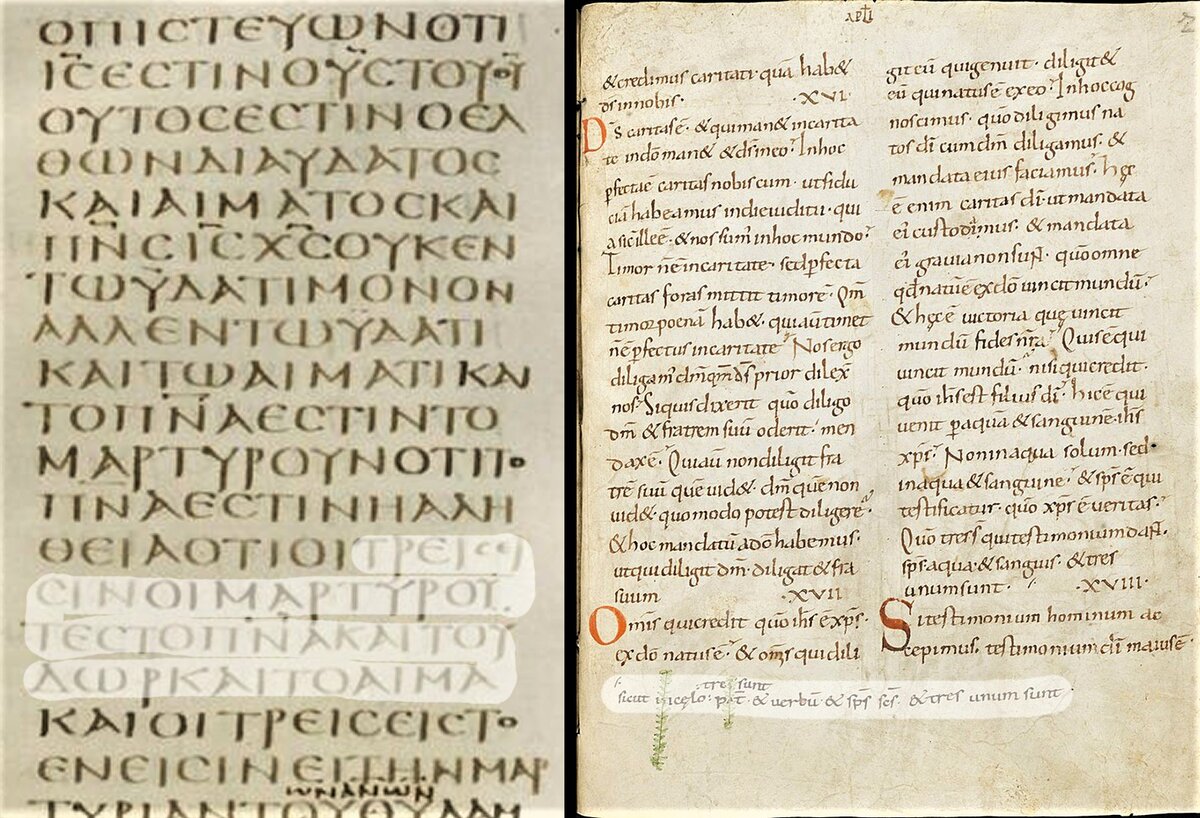 ΟΠΙCΤΕΥΩΝΟΤΙ
ΙC̅ΕCΤΙΝΟΥC̅ΤΟΥΘΥ̅
ΟΥΤΟCΕCΤΙΝΟΕΛ
ΘΩΝΔΙΑΫΔΑΤΟC
ΚΑΙΑΙΜΑΤΟCΚΑΙ
ΠΝ̅C̅ΙC̅ΧC̅ΟΥΚΕΝ
ΤΩΫΔΑΤΙΜΟΝΟΝ
ΑΛΛΕΝΤΩΫΔΑΤΙ
ΚΑΙΤΩΑΙΜΑΤΙΚΑΙ
ΤΟΠΝ̅ΑΕCΤΙΝΤΟ
ΜΑΡΤΥΡΟΥΝΟΤΙΤΟ
ΠΝ̅ΑΕCΤΙΝΗΑΛΗ
ΘΕΙΑΟΤΙΟΙΤΡΕΙCΕΙ
CΙΝΟΙΜΑΡΤΥΡΟΥ
ΤΕCΤΟΠΝ̅ΑΚΑΙΤΟΫ
ΔΩΡΚΑΙΤΟΑΙΜΑ
ΚΑΙΟΙΤΡΕΙCΕΙCΤΟ
ΕΝΕΙCΙΝΕΙΤΗΝΜΑΡ
ΤΩΝΑΝΩΝ
ΤΥΡΙΑΝΤΟΥΘΥΛΑΜ
&credimus caritati quā hab&
d̄s innobis· ·XVI·
D̄s caritasē· & quiman& incarita
te indōman& & d̄s ineo· Inhoc
ꝑfectaē caritas nobiscum· utfidu
ciā habeamus indieiudicii· qui
asicilleē· & nos sum' inhoc mundo·
Timor nēincaritate· sedꝑfecta
caritas foras mittit timorē· Qm̄
timor poenā hab&· quiaūtimet
nēꝑfectus incaritate· Nosergo
diligam' dm̄ qm̄ d̄s prior dilex
nos· Siquis dixerit quō diligo
dm̄ & fratrem suū oderit· men
daxē· Quiaū nondiligit fra
trē suū quē uid&· dm̄ quē non
uid& quomodo potest diligere·
& hoc mandatū adō habemus·
utqui diligit dm̄· diligat & fra
suum ·XVII·
Omīs quicredit quō ih̄s ē xp̄s·
exdō natusē· & om̄s quidili
git eū quigenuit· diligit &
eū quinatusē exeo· Inhoc cog
noscimus quō diligimus na
tos dī cum dm̄ diligamus· &
mandata eius faciamus· hęc
ē enim caritas dī· ut mandata
ei' custodimus· & mandata
ei' grauia nonsunt· quō omne
qd̄ natūē exdō uincit mundū·
& hęc ē uictoria quę uincit
mundū fides nr̄a· Quis ē qui
uincit mundū· nisi quicredit·
quō ih̄s est filius dī· hicē qui
uenit ꝑaquā & sanguinē ih̄s
xp̄s· Non inaqua solum· sed·
inaqua & sanguine· & sp̄s ē qui
testificatur· quō xp̄s ē ueritas·
Quō tres s̄ qui testimonium dant·
sp̄s· aqua· & sanguis· & tres
unum sunt· ·XVIII·
Si testimonium hominum ac
cepimus· testimonium dī maius ē
tres sunt
sicut in celo· pat̄· & uerbū· & sp̄s sc̄s· & tres unum sunt